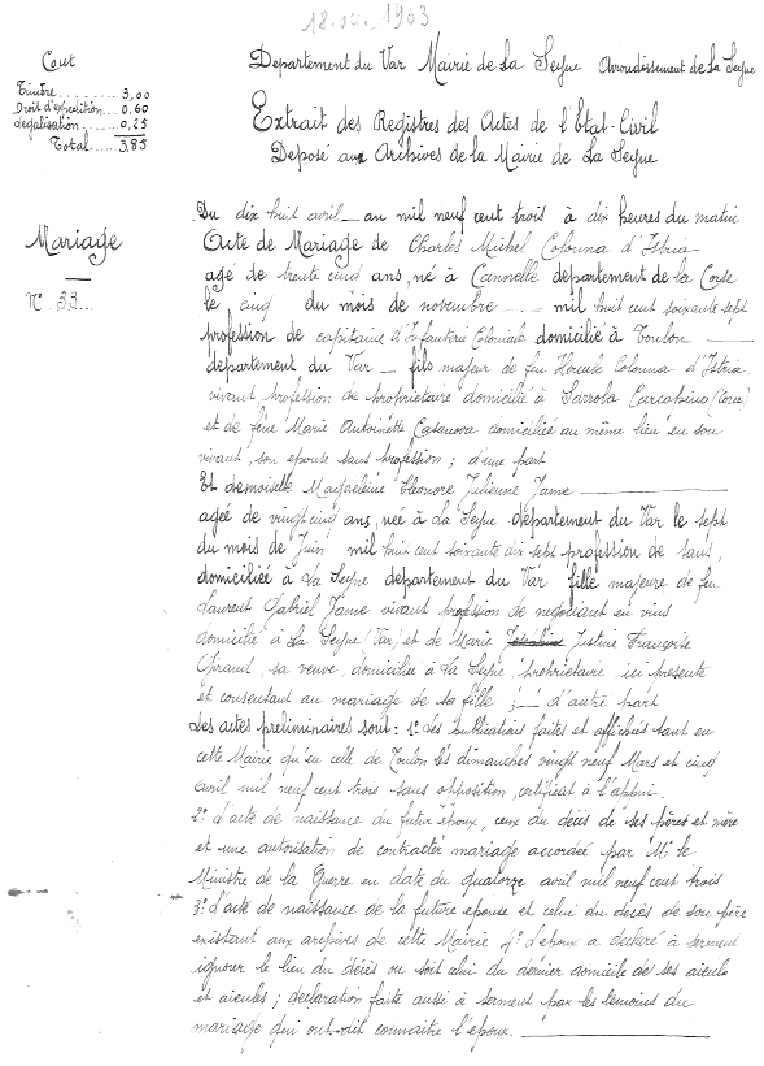 18.04.1903
Cout
Timbre ........ 3,00
Droit d'expedition .... 0,60
Legalisation ...... 0,25
Total ..... 3,85
Departement du Var Mairie de La Seyne Arroudissement de La Seyne
Extrait des Registres des Actes de l'Etat-Civil
Deposé aux Archives de la Mairie de La Seyne
Mariage
N° 33
Du dix huit avril _ au mil neuf cent trois à dix heures du matin
Acte de Mariage de Charles Michel Colonna d'Istria
agé de trente cinq ans, né à Cannelle departement de la Corse
le cinq du mois de novembre _ _ mil huit cent soixante sept
profession de capitaine d'Infanterie Coloniale domicilié à Toulon
departement du Var _ fils majeur de feu Hercule Colonna d'Istria
vivant profession de propriétaire domicilié à Sarrola Carcopino (Corse)
et de feue Marie Antoinette Casanova domiciliée au même lieu en son
vivant, son epouse sans profession ; d'une part
Et demoiselle Magdeleine Eleonore Julienne Jame
agée de vingt cinq ans, née à La Seyne departement du Var le sept
du mois de Juin mil huit cent soixante dix sept profession de sans,
domiciliée à La Seyne departement du Var fille majeure de feu
Laurent Gabriel Jame vivant profession de negociant en vins
domicilié à La Seyne (Var) et de Marie Justine Françoise
Giraud, sa veuve, domiciliée à La Seyne, proprietaire, ici presente
et consentant au mariage de sa fille ; _ d'autre part
Les actes preliminaires sont : 1° Les publications faites et affichées tant en
cette Mairie qu'en celle de Toulon les dimanches vingt neuf Mars et cinq
avril mil neuf cent trois sans opposition, certificat à l'appui.
2° L'acte de naissance du futur epoux, ceux du décès de ses pères et mère
et une autorisation de contracter mariage accordée par Mr le
Ministre de la Guerre en date du quatorze avril mil neuf cent trois
3° L'acte de naissance de la future epouse et celui du decès de son père
existant aux archives de cette Mairie 4° L'epoux a declaré à serment
ignorer le lieu du décès ou soit celui du dernier domicile de ses aieuls
et aieules ; declaration faite aussi à serment par les temoins du
mariage qui ont dit connaitre l'epoux.